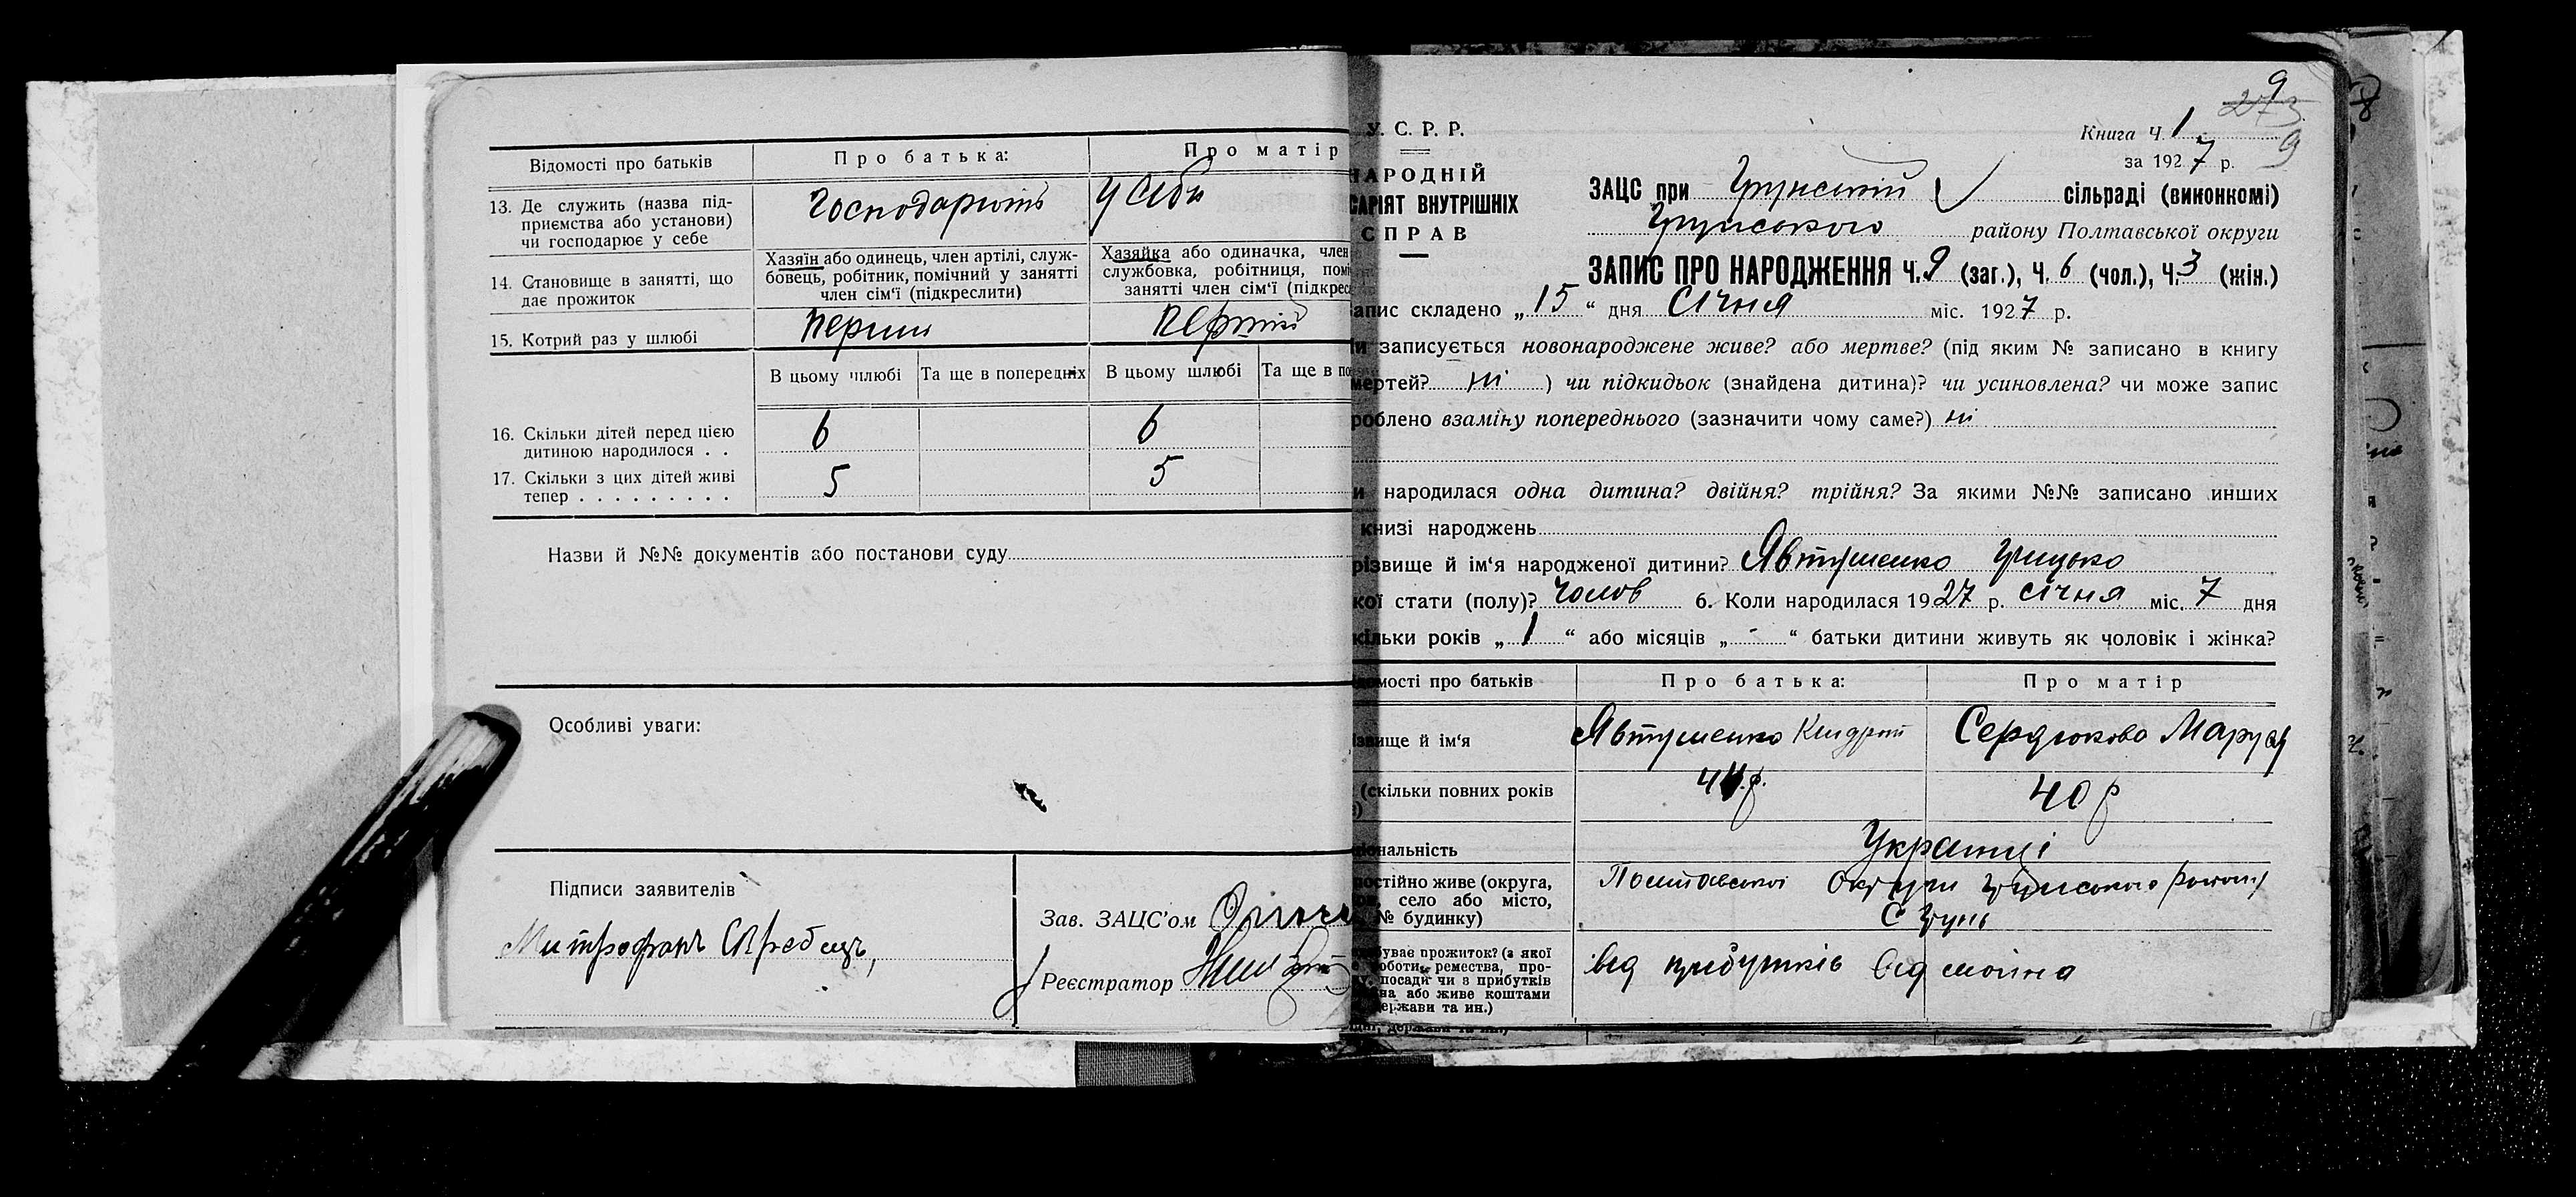 Відомості про батьків
Про батька:
Про матір
13. Де служить (назва під-
приємства або установи)
чи господарює у себе
Господарить
у себе
14. Становище в занятті, що
дає прожиток
Хазяїн або одинець, член артілі, служ-
бовець, робітник, помічний у занятті
член сім'ї (підкреслити)
Хазяйка або одиначка, член
службовка, робітниця, пом
занятті член сім'ї (підкрес
15. Котрий раз у шлюбі
перший
первий
В цьому шлюбі
Та ще в попередніх
В цьому шлюбі
Та ще в по
16. Скільки дітей перед цією
дитиною народилося . .
6
6
17. Скільки з цих дітей живі
тепер . . . . . . . . .
5
5
Назви й №№ документів або постанови суду
Особливі уваги:
Підписи заявителів
Митрофанъ
Зав. ЗАЦС'ом
Реєстратор
9
273
9
У. С. Р. Р.
НАРОДНІЙ
САРІЯТ ВНУТРІШНІХ
СПРАВ
Книга Ч. 1
за 1927 р.
ЗАЦС при Грунській сільраді (виконкомі)
Грунського району Полтавської округи
ЗАПИС ПРО НАРОДЖЕННЯ Ч. 9 (заг.), Ч. 6 (чол.), Ч. 3 (жін.)
апис складено „15“ дня Січня міс. 1927 р.
и записується новонароджене живе? або мертве? (під яким № записано в книгу
мертей? ні ) чи підкидьок (знайдена дитина)? чи усиновлена? чи може запис
роблено взаміну попереднього (зазначити чому саме?) ні
и народилася одна дитина? двійня? трійня? За якими №№ записано инших
книзі народжень
різвище й ім'я народженої дитини? Явтушенко Грицько
кої стати (полу)? Чолов 6. Коли народилася 1927 р. січня міс. 7 дня
кільки років „1“ або місяців „-“ батьки дитини живуть як чоловік і жінка?
омості про батьків
Про батька:
Про матір
ізвище й ім'я
Явтушенко Кіндрат
Сердюкова Маруся
(скільки повних років
44 р.
40 р
іональність
Українці
постійно живе (округа,
он, село або місто,
№ будинку)
Полтавської Округи Грунського району
С Грунь
буває прожиток? (з якої
оботи, ремества, про-
посади чи з прибутків
на або живе коштами
держави та ин.)
від прибутків від майна